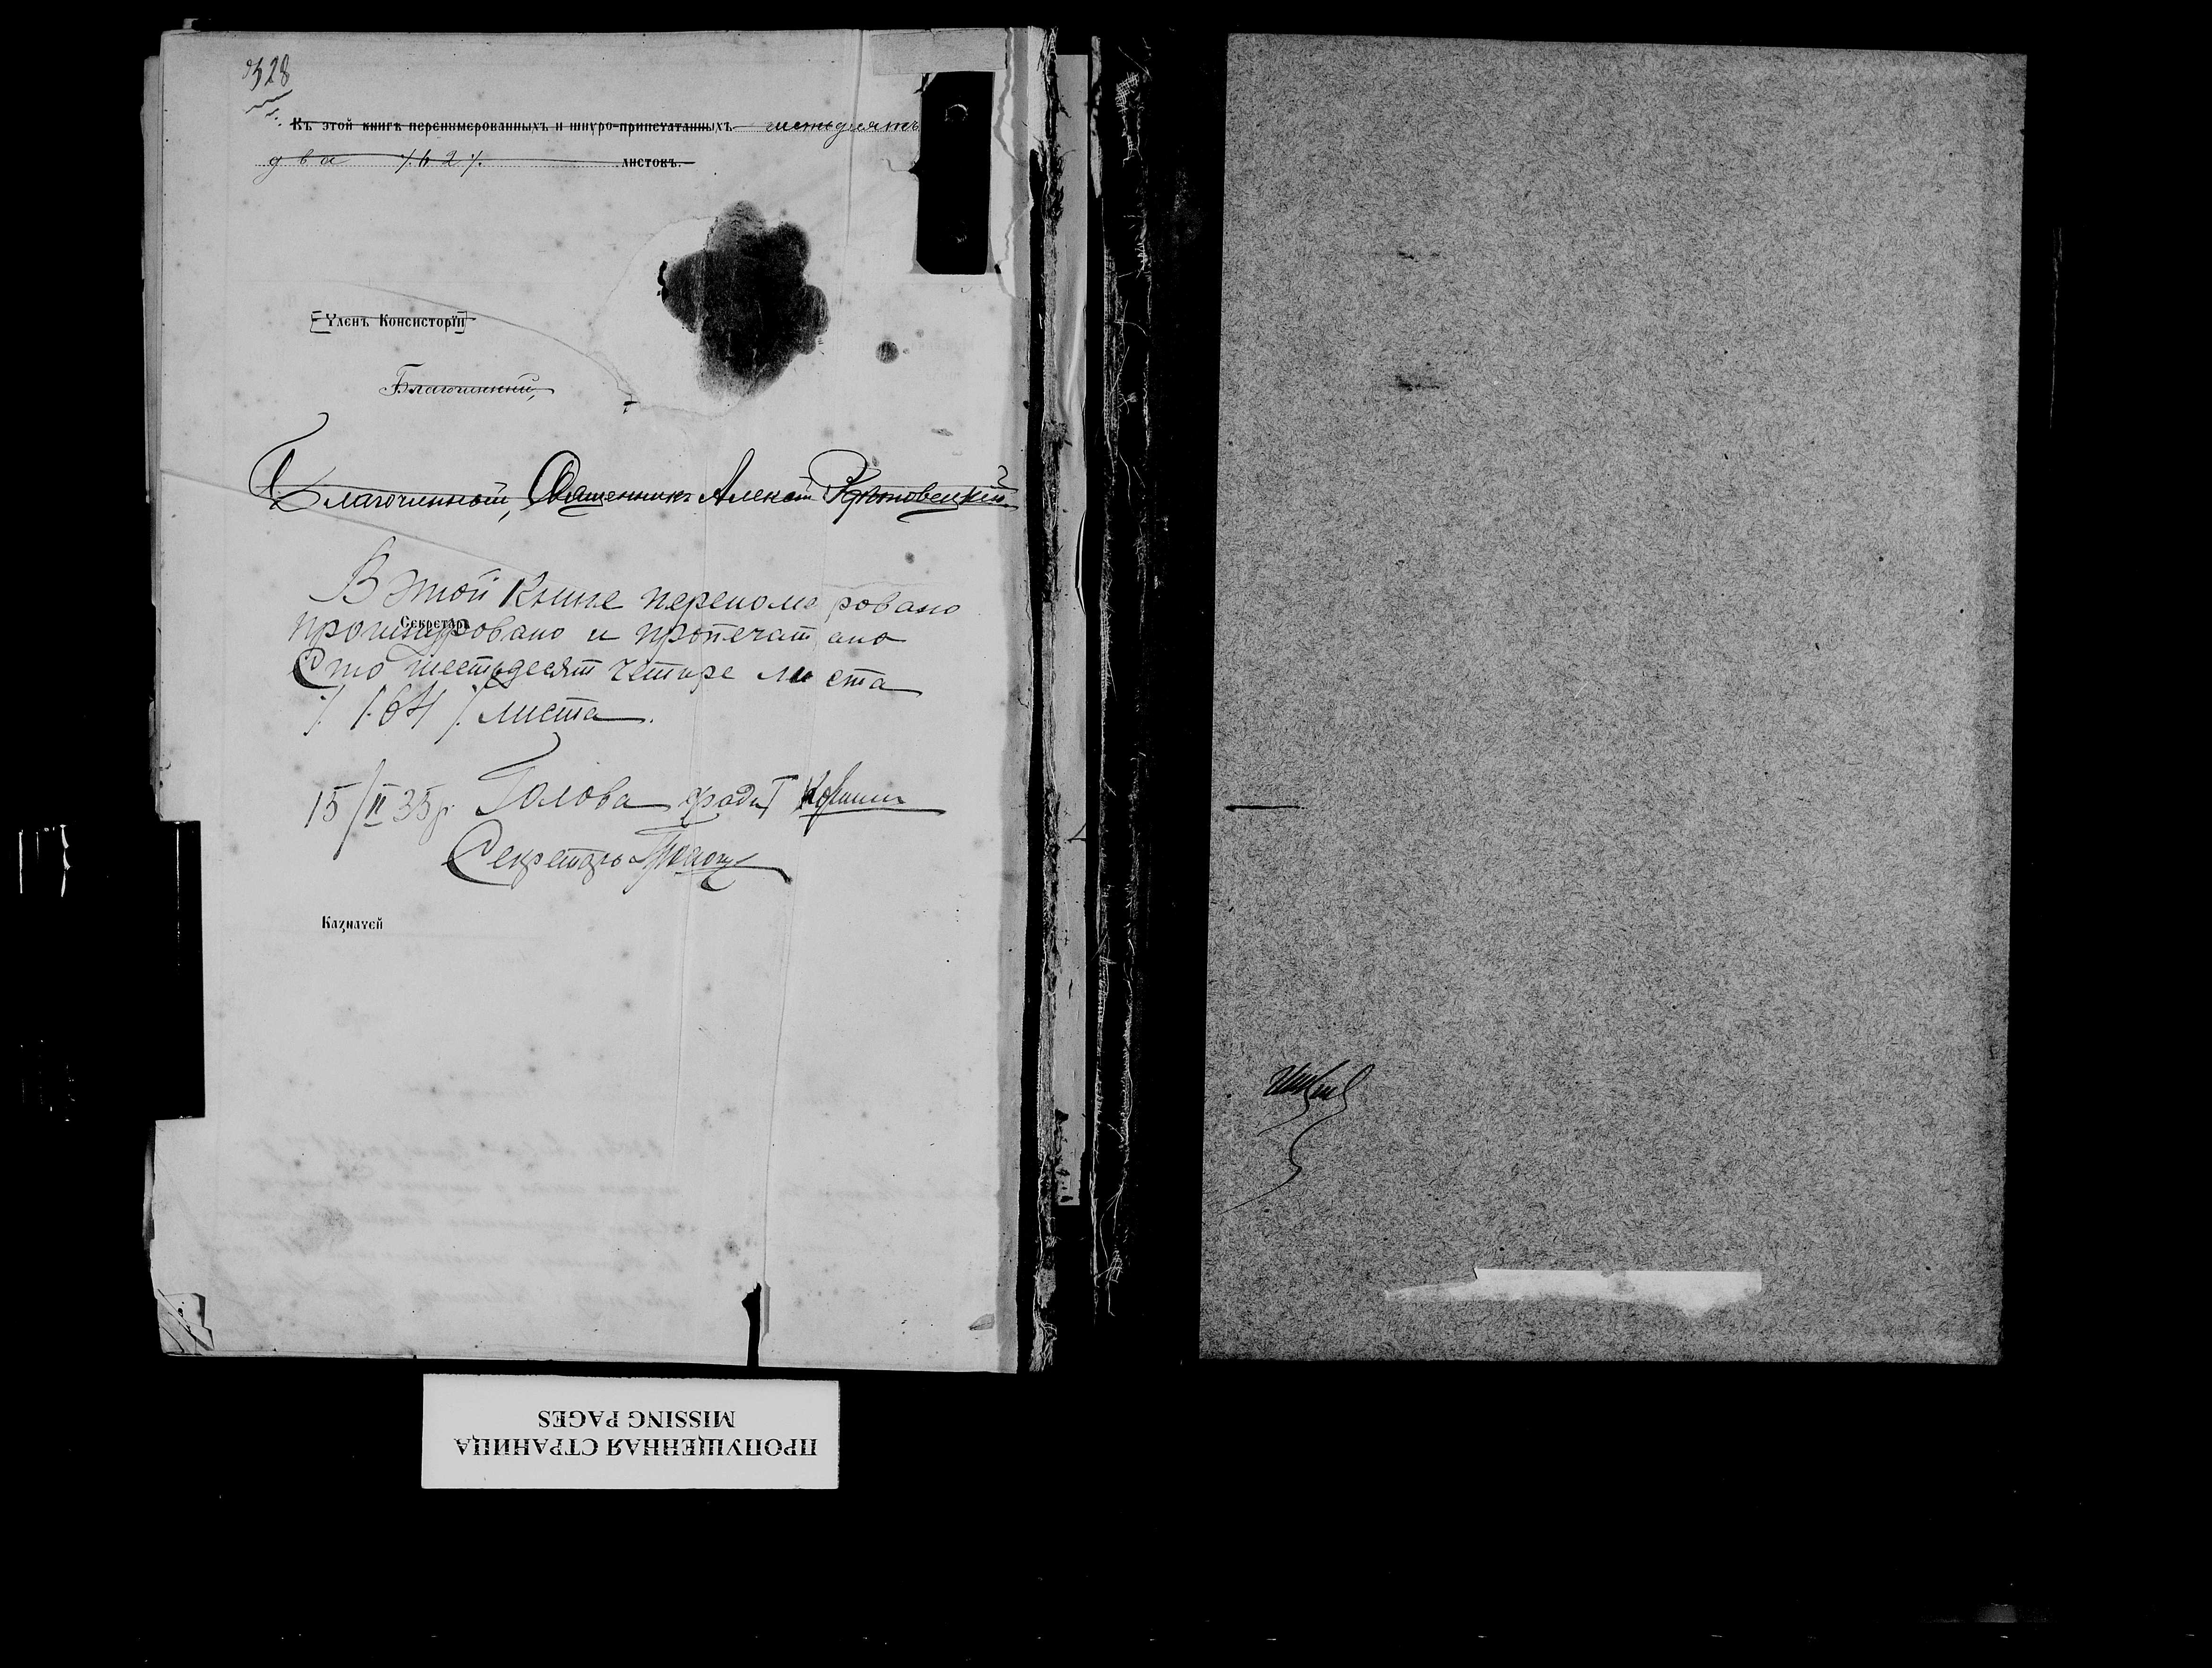 328
Къ этой книгѣ перенумерованныхъ и шнуро-припечатанныхъ шестьдесятъ
два /.62/. листокъ.
Членъ Консисторіи
Благочинный,
Благочинный, Священникъ Алексѣй
В этой книге переномеровано
Секретарь
прошнуровано и пропечатано
Сто шестьдесят четыре листа
/.164/. листа.
15/II 35 р. Голова
Секретарь
Казначей
ПРОПУЩЕННАЯ СТРАНИЦА
MISSING PAGES